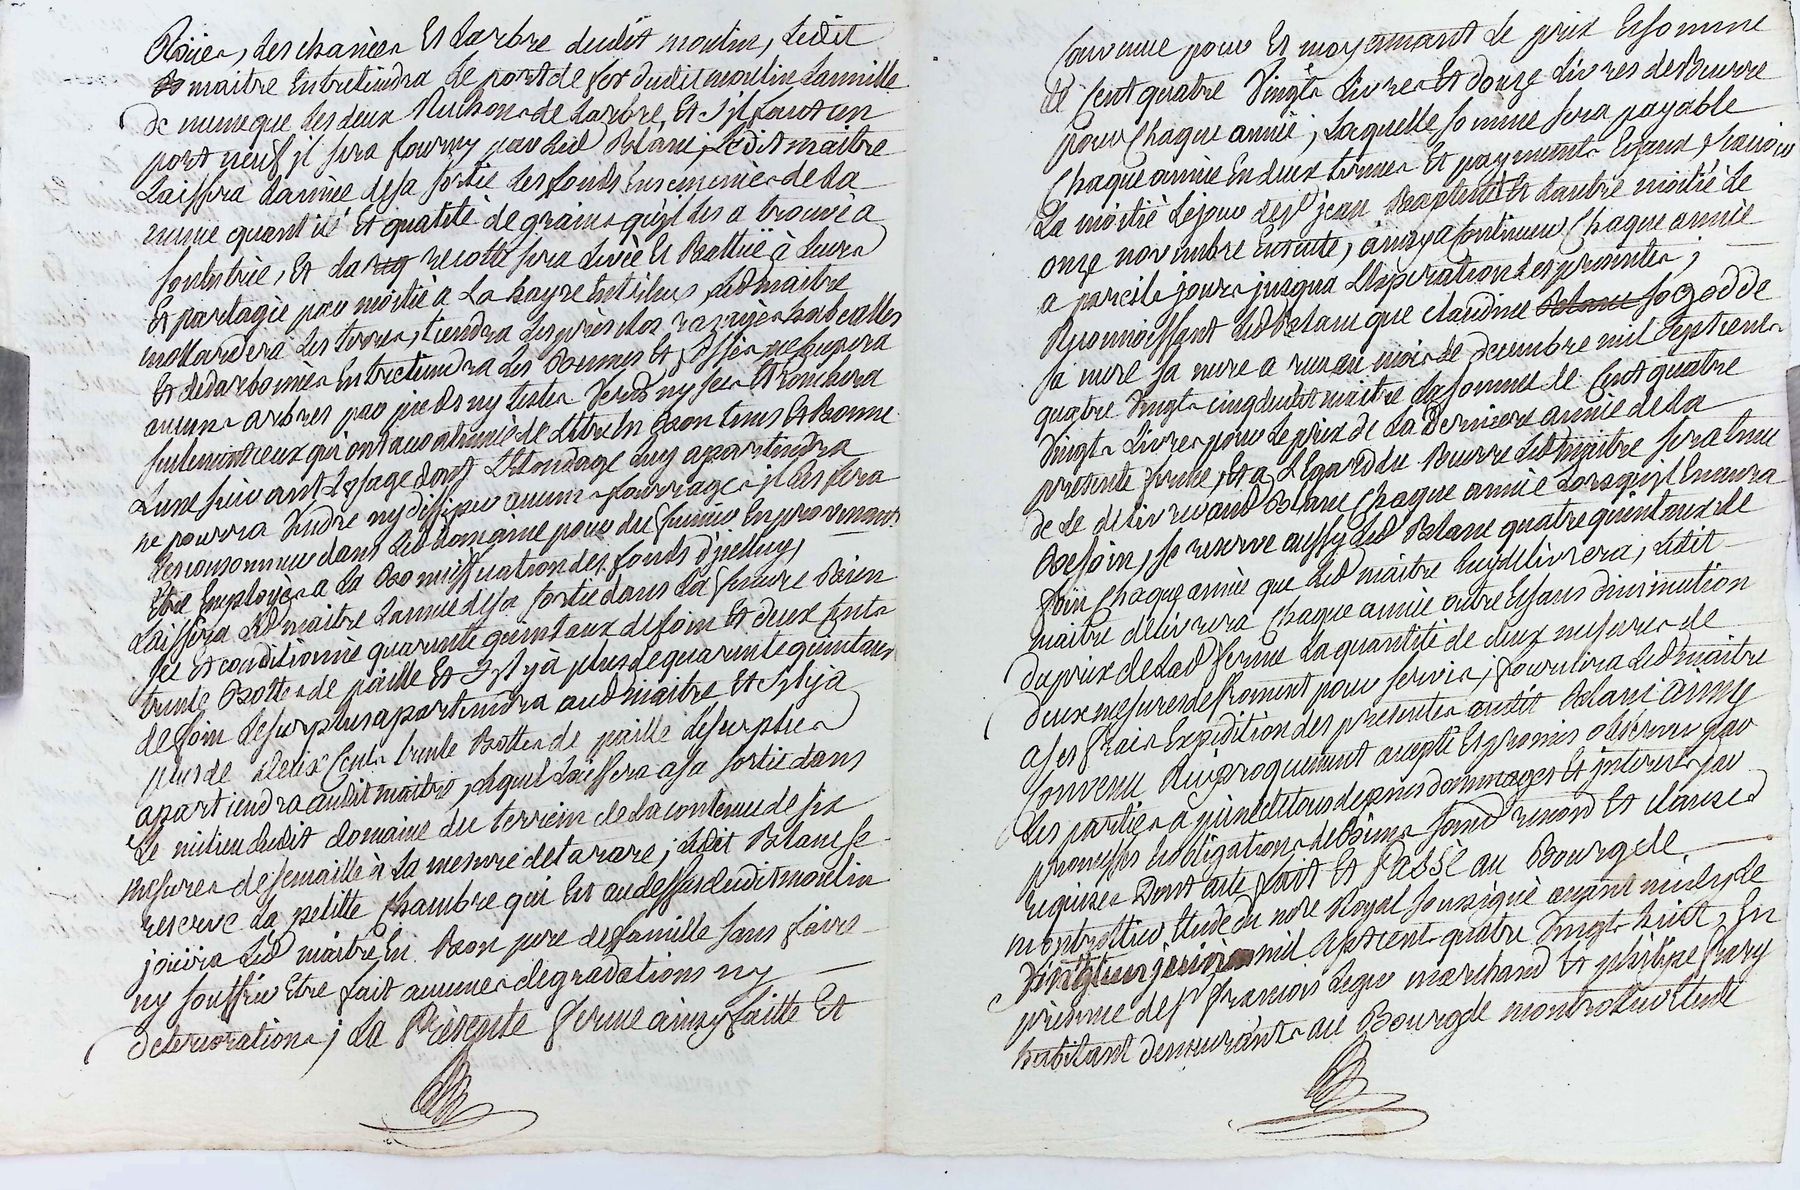 Rivier, les chanées Et Larbre dudit moulin, Ledit
maitre Entretiendra Le port de fer dudit moulin Lanille
de meme que les deux Ruchons de Larbre, Et S'il faut un
port neuf il sera fourny par Led Blanc, Ledit maitre
Laissera Lannée de sa sortie les fonds Ensemencés de la
meme quantité Et qualité de grains qu'il les a trouvé a
son Entrée, Et la recolte sera Levée Et Battüe à Leurs
Et partagée par moitié a La
les terres, tiendra les près clos
Et Entretiendra Les Et ne Coupera
aucuns arbres par pieds ny testes verds ny secs Et
seulement ceux qui ont accoutumé de L'etre En Bon tems Et Bonne
Lune suivant L'usage dont L'Elondage Luy apartiendra
ne pourra vendre ny dissiper aucuns fourrages, il les fera
consommer dans led domaine pour du fumier En provenant
Etre Employés a La Bonniffication des fonds d'jcelluy,
Laissera Led maitre Lannée de sa sortie dans la Bien
sec Et conditionné quarante quintaux de foin Et deux Cents
trente Bottes de paille Et S'il y à plus de quarante quintaux
de foin Le surplus apartiendra aud maitre Et S'il y à
plus de deux Cents trente Bottes de paille Le surplus
apartiendra audit maitre, Lequel Laissera a sa sortie dans
Le milieu dudit domaine du terrein de la contenue de six
mesures de semaille à La mesure de tarare; Ledit Blanc se
reserve La petitte Chambre qui Est au dessus dudit moulin
joüira Led maitre En Bon pere de famille sans faire
ny souffrir Etre fait aucunes degradations ny
deteriorations; La Présente ferme ainsy faitte Et
Convenue pour Et moyennant Le prix Et somme
de Cent quatre Vingts Livres Et douze Livres de Beurre
pour Chaque année; Laquelle somme sera payable
Chaque année En deux termes Et payments Egaux, scavoir
La moitié Le jour de St jean Baptiste Et Lautre moitié Le
onze novembre Ensuite, ainsy a Continuer Chaque année
a pareils jours jusqua L'Expiration des presentes;
Reconnoissant Led Blanc que claudine
sa mere sa mere a recu au mois de decembre mil sept cent
quatre Vingts cinq dudit maitre La somme de Cent quatre
Vingts Livres pour Le prix de La Derniere année de La
presente ferme, Et a L'Egard du Beurre Led maitre sera tenu
de Le delivrer aud Blanc Chaque année Lorsqu'il En aura
Besoin, se reserve aussy Led Blanc quatre quintaux de
foin Chaque année que Led maitre Luy delivrera, Ledit
maitre delivrera Chaque année outre Et sans diminution
du prix de Lad ferme La quantité de deux mesures de
deux mesures de froment pour servis, fournira Led maitre
a ses frais Expedition des presentes audit Blanc ainsy
Convenu Reciproquement accepté Et promis observer par
Les parties à peine de tous depens dommages Et jnterets par
promesses obligations de Biens soumd renond Et clauses
requises Dont acte fait Et Passé au Bourg de
montrottier Etude du nore Royal soussigné avant midy Le
Vingt un janvier mil sept cent quatre Vingts huit, En
présence de Sr francois marchand Et philipe
habitant demeurants au Bourg de montrottier Etude